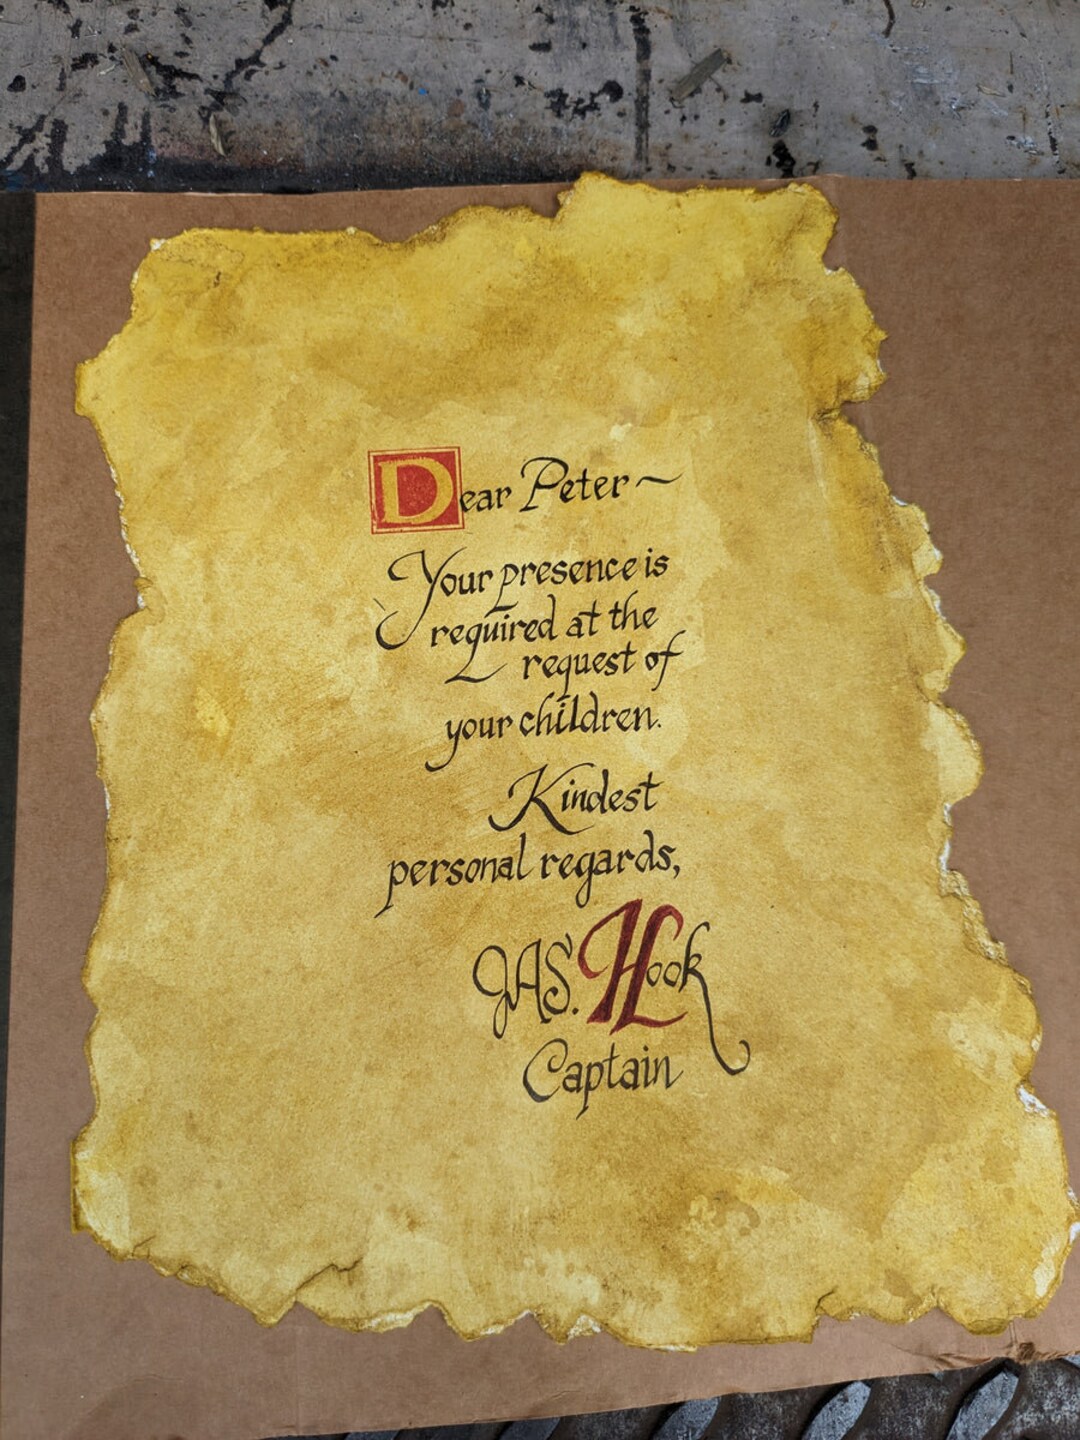 Dear Peter ~
Your presence is
required at the
request of
your children.
Kindest
personal regards,
JAS. Hook
Captain